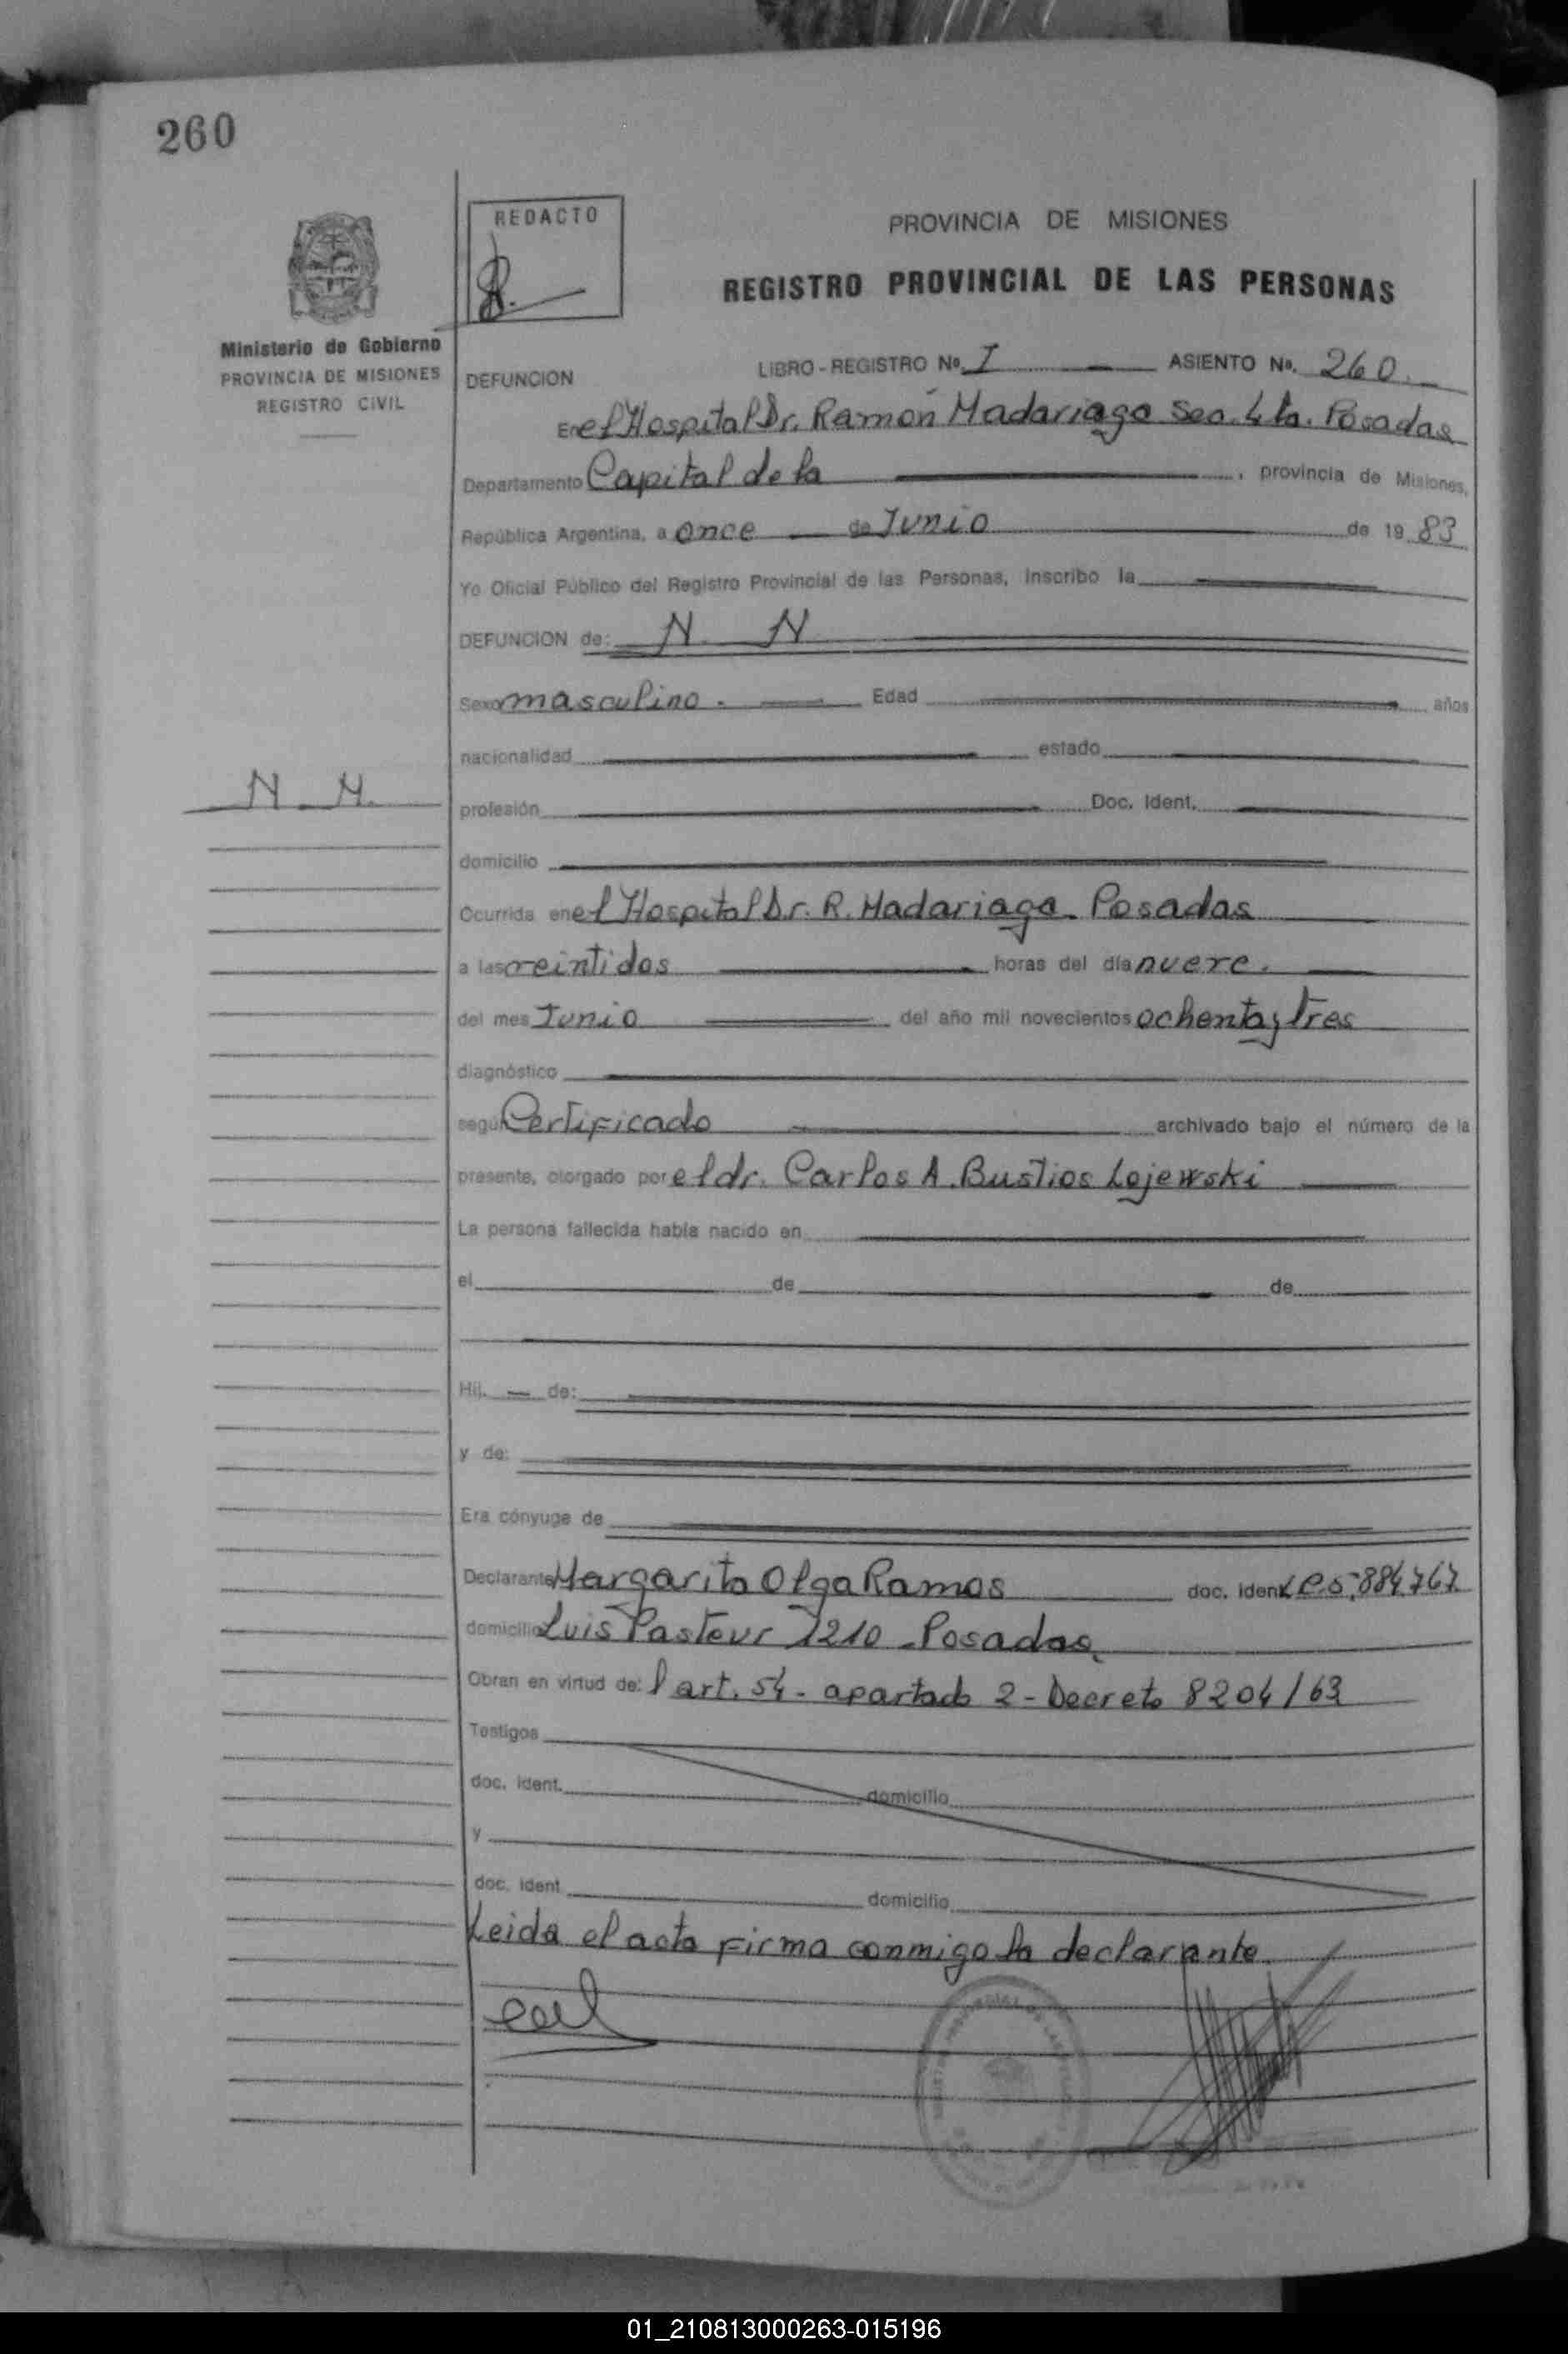 260
REDACTO
PROVINCIA DE MISIONES
REGISTRO PROVINCIAL DE LAS PERSONAS
Ministerio de Gobierno
PROVINCIA DE MISIONES
REGISTRO CIVIL
LIBRO - REGISTRO No. I ASIENTO No. 260.
DEFUNCION
En el Hospital Dr. Ramón Madariaga Sec. 4ta. Posadas
Departamento Capital de la , provincia de Misiones,
República Argentina, a once de Junio de 19 83
Yo Oficial Público del Registro Provincial de las Personas, inscribo la
DEFUNCION de: N. N
Sexo masculino. Edad años
nacionalidad estado
N. N.
profesión Doc. Ident.
domicilio
Ocurrida en el Hospital Dr. R. Madariaga. Posadas
a las veintidos horas del día nueve.
del mes Junio del año mil novecientos ochenta y tres
diagnóstico
según Certificado archivado bajo el número de la
presente, otorgado por el dr. Carlos A. Bustios Lojewski
La persona fallecida había nacido en
el de de
Hij. de:
y de:
Era cónyuge de
Declarante Margarita Olga Ramos doc. ident.
domicilio Luis Pasteur 1210 - Posadas
Obran en virtud de: l art. 54 - apartado 2 - Decreto 8204/63
Testigos
doc. ident. domicilio
y
doc. ident. domicilio
Leida el acta firma conmigo la declarante.
01_210813000263-015196